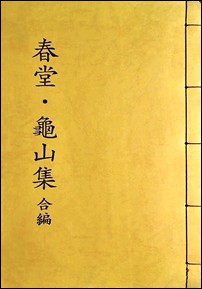 春堂·龜山集 合編